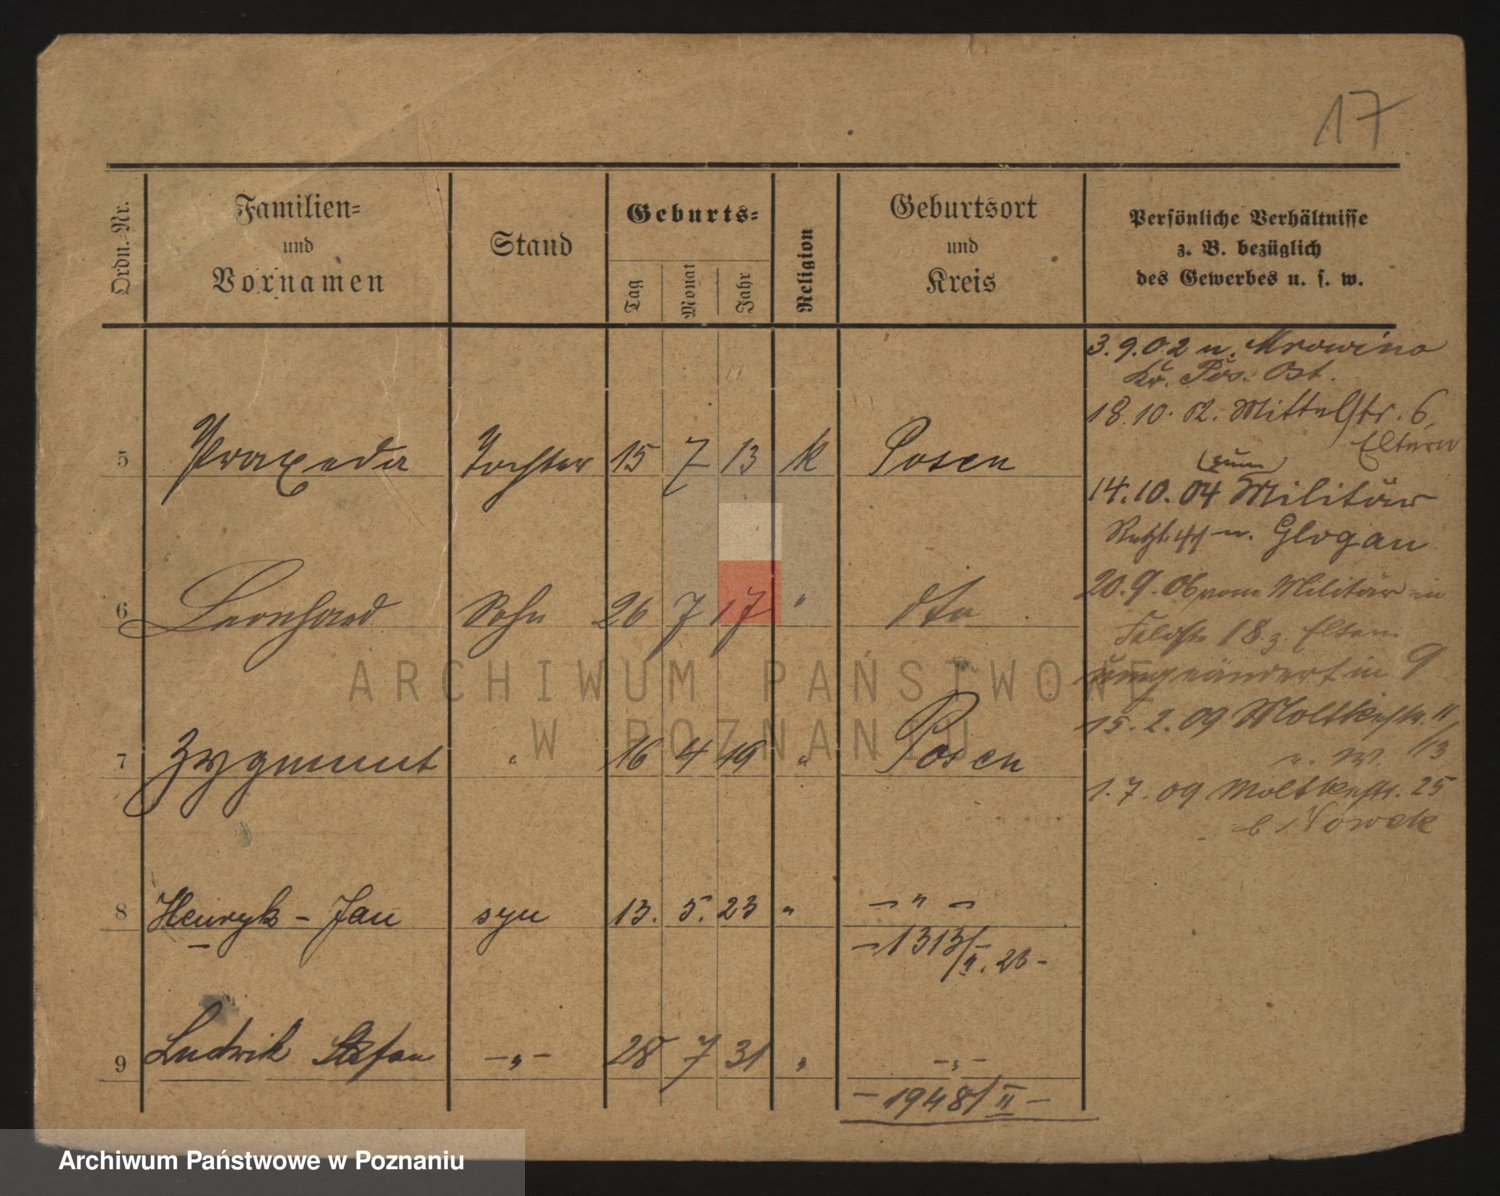 17
Ordn.-Nr.
Familien-
und
Vornamen
Stand
Geburts-
Tag
Monat
Jahr
Religion
Geburtsort
und
Kreis
Persönliche Verhältnisse
z. B. bezüglich
des Gewerbes u. s. w.
5 Praxeda Tochter 15 7 13 k Posen
6 Leonhard Sohn 26 7 17 " dto
7 Zygmunt " 16 4 19 " Posen
8 Henryk - Jan syn 13. 5. 23 " — " —
- 1313/II. 23 -
9 Ludwik Stefan - " - 28 7 31 " - " -
- 1948/II -
3. 9. 02 n. Mrowino
Kr. Pos. Ost.
18. 10. 02. Mittelstr. 6
Eltern
(zum)
14. 10. 04 Militär
n. Glogau
20. 9. 06 vom Militär in
18 z. Eltern
umgeändert in 9
15. 2. 09 Moltkestr. 11/13
1. 7. 09 Moltkestr. 25
b Nowak
ARCHIWUM PAŃSTWOWE
W POZNANIU
Archiwum Państwowe w Poznaniu